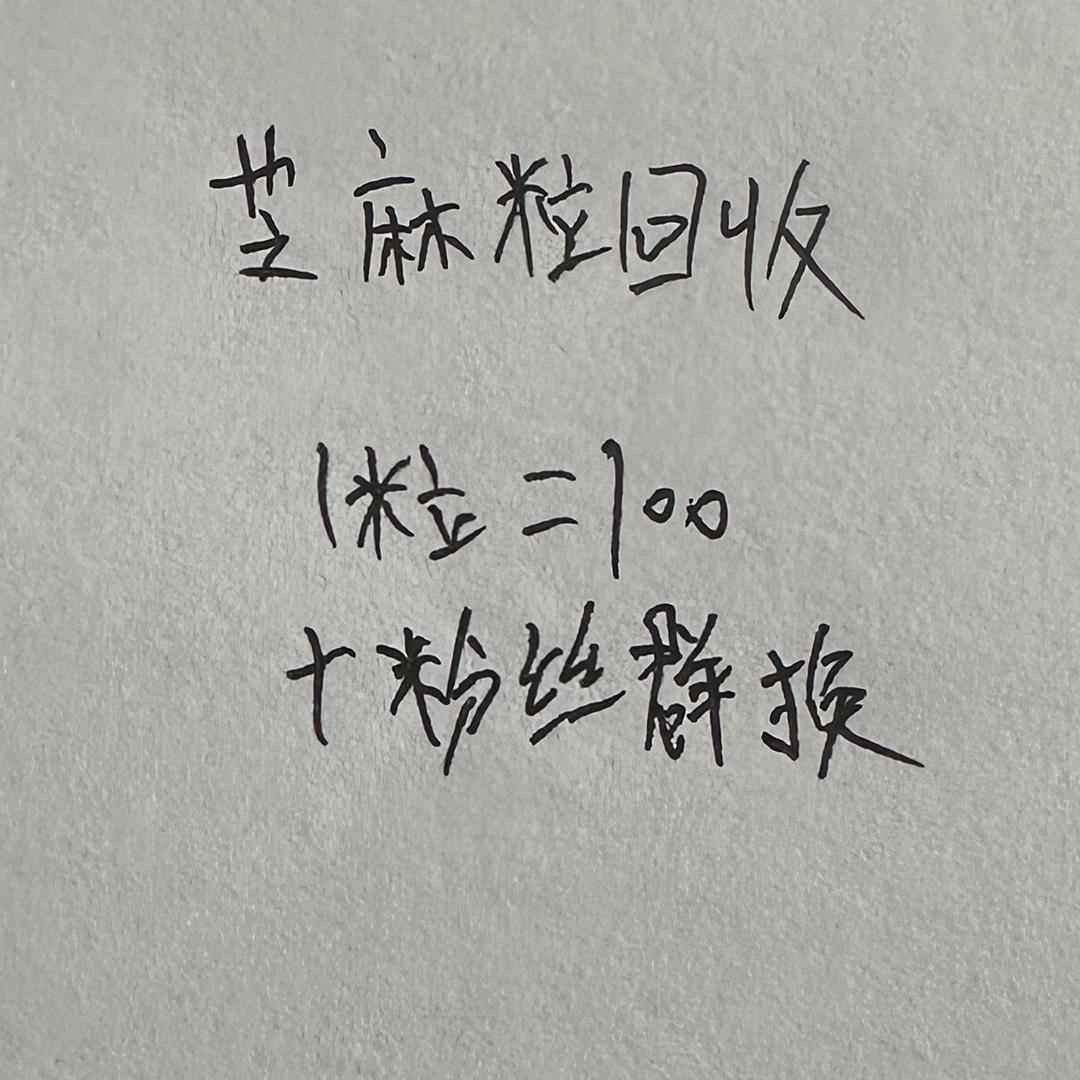 芝麻粒回收
1粒=100
+粉丝群换